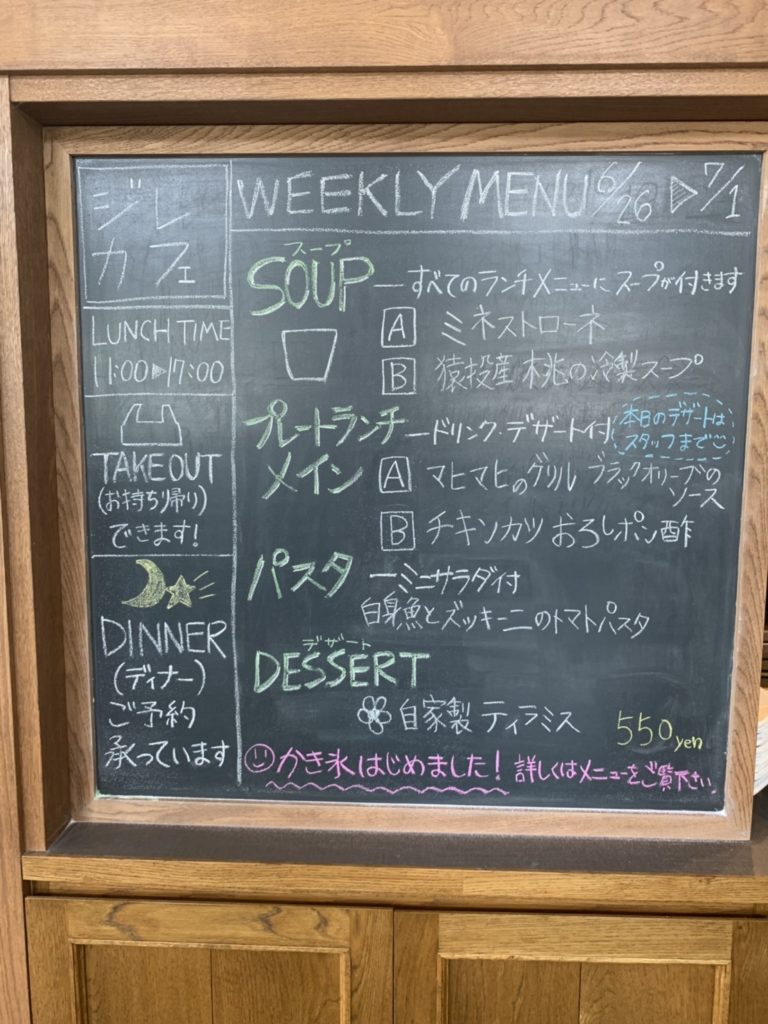 ジレ
カフェ
LUNCH TIME
11:00▷17:00
TAKEOUT
(お持ち帰り)
できます!
DINNER
(ディナー)
ご予約
承っています
WEEKLY MENU 6/26 ▷ 7/1
スープ
SOUP ―すべてのランチメニューに スープが付きます
A ミネストローネ
B 猿投産 桃の冷製スープ
プレートランチ ―ドリンク・デザート付
本日のデザートは
スタッフまで
メイン A マヒマヒのグリル ブラックオリーブの
ソース
B チキンカツ おろしポン酢
パスタ ―ミニサラダ付
白身魚とズッキーニのトマトパスタ
デザート
DESSERT
自家製 ティラミス 550yen
かき氷はじめました! 詳しくはメニューをご覧下さい。